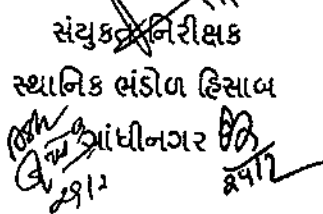 સંયુક્ત નિરીક્ષક
સ્થાનિક ભંડોળ હિસાબ
ગાંધીનગર